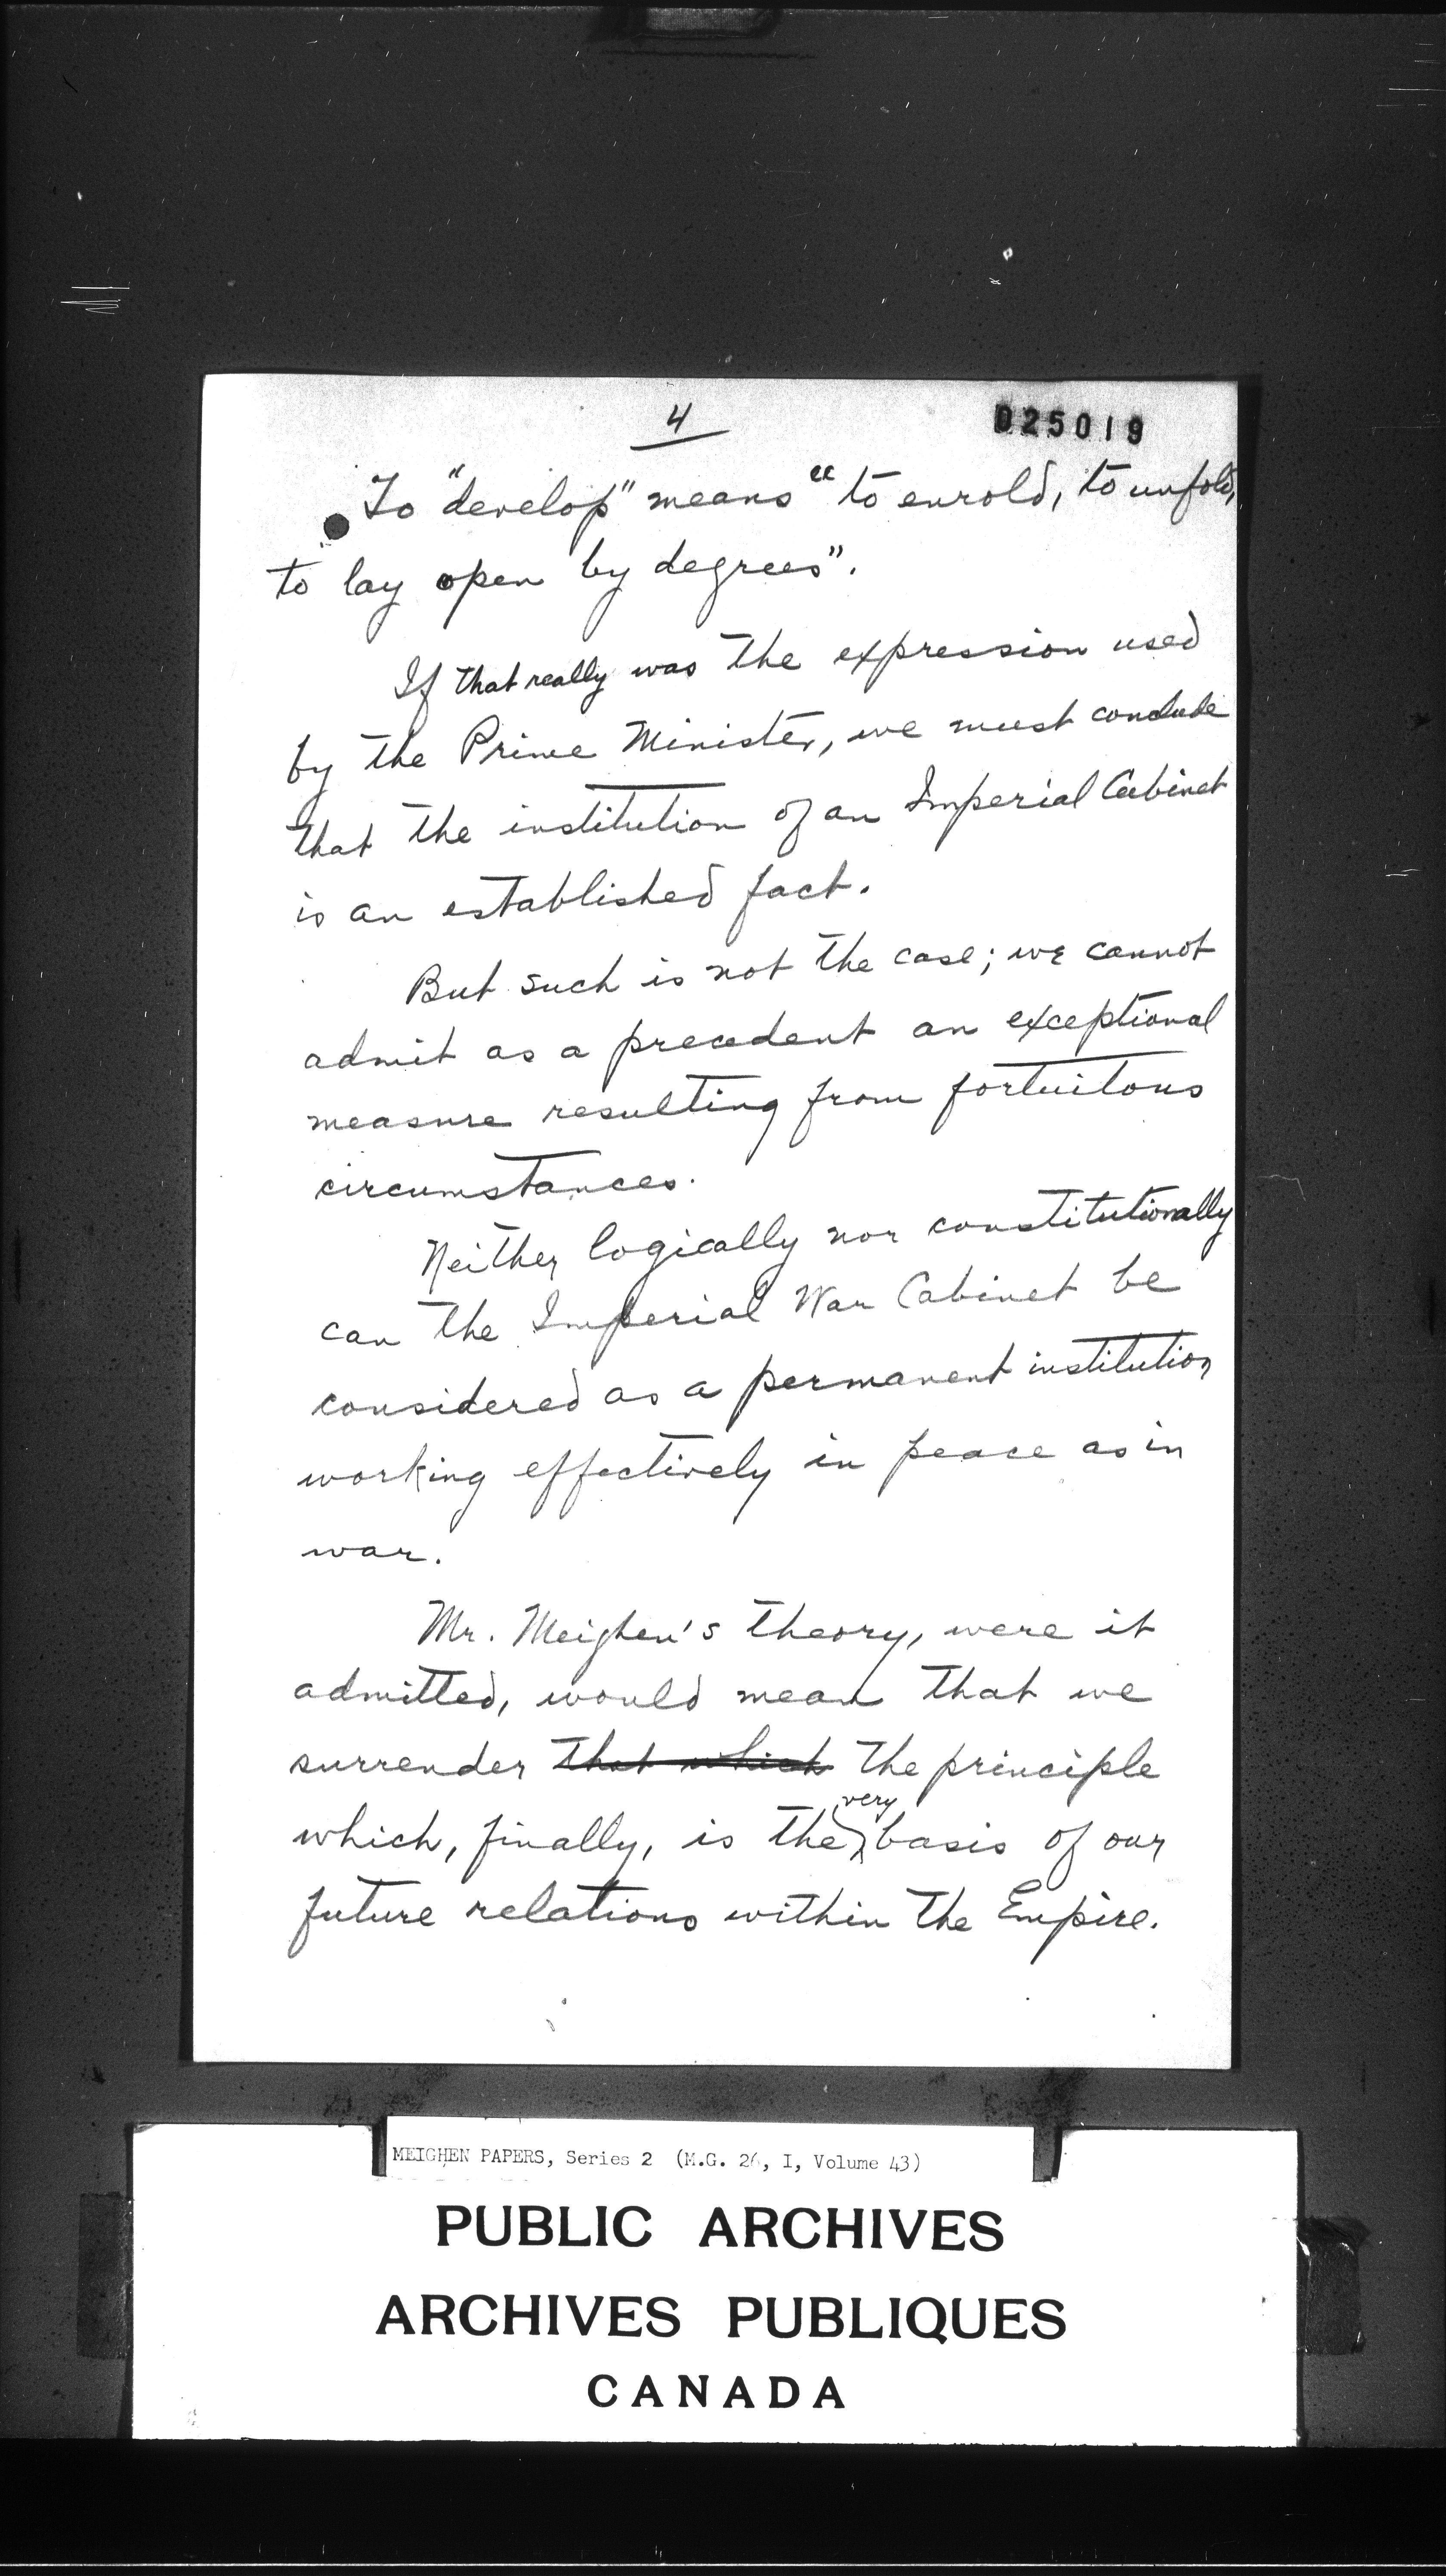 4
025019
To "develop" means "to enrold, to unfold,
to lay open by degrees".
If that really was the expression used
by the Prime Minister, we must conclude
that the institution of an Imperial Cabinet
is an established fact.
But such is not the case; we cannot
admit as a precedent an exceptional
measure resulting from fortuitous
circumstances.
Neither logically nor constitutionally
can the Imperial War Cabinet be
considered as a permanent institution
working effectively in peace as in
war.
Mr. Meighen's theory, were it
admitted, would mean that we
surrender that which the principle
which, finally, is the very basis of our
future relations within the Empire.
MEIGHEN PAPERS, Series 2 (M.G. 26, I, Volume 43)
PUBLIC ARCHIVES
ARCHIVES PUBLIQUES
CANADA